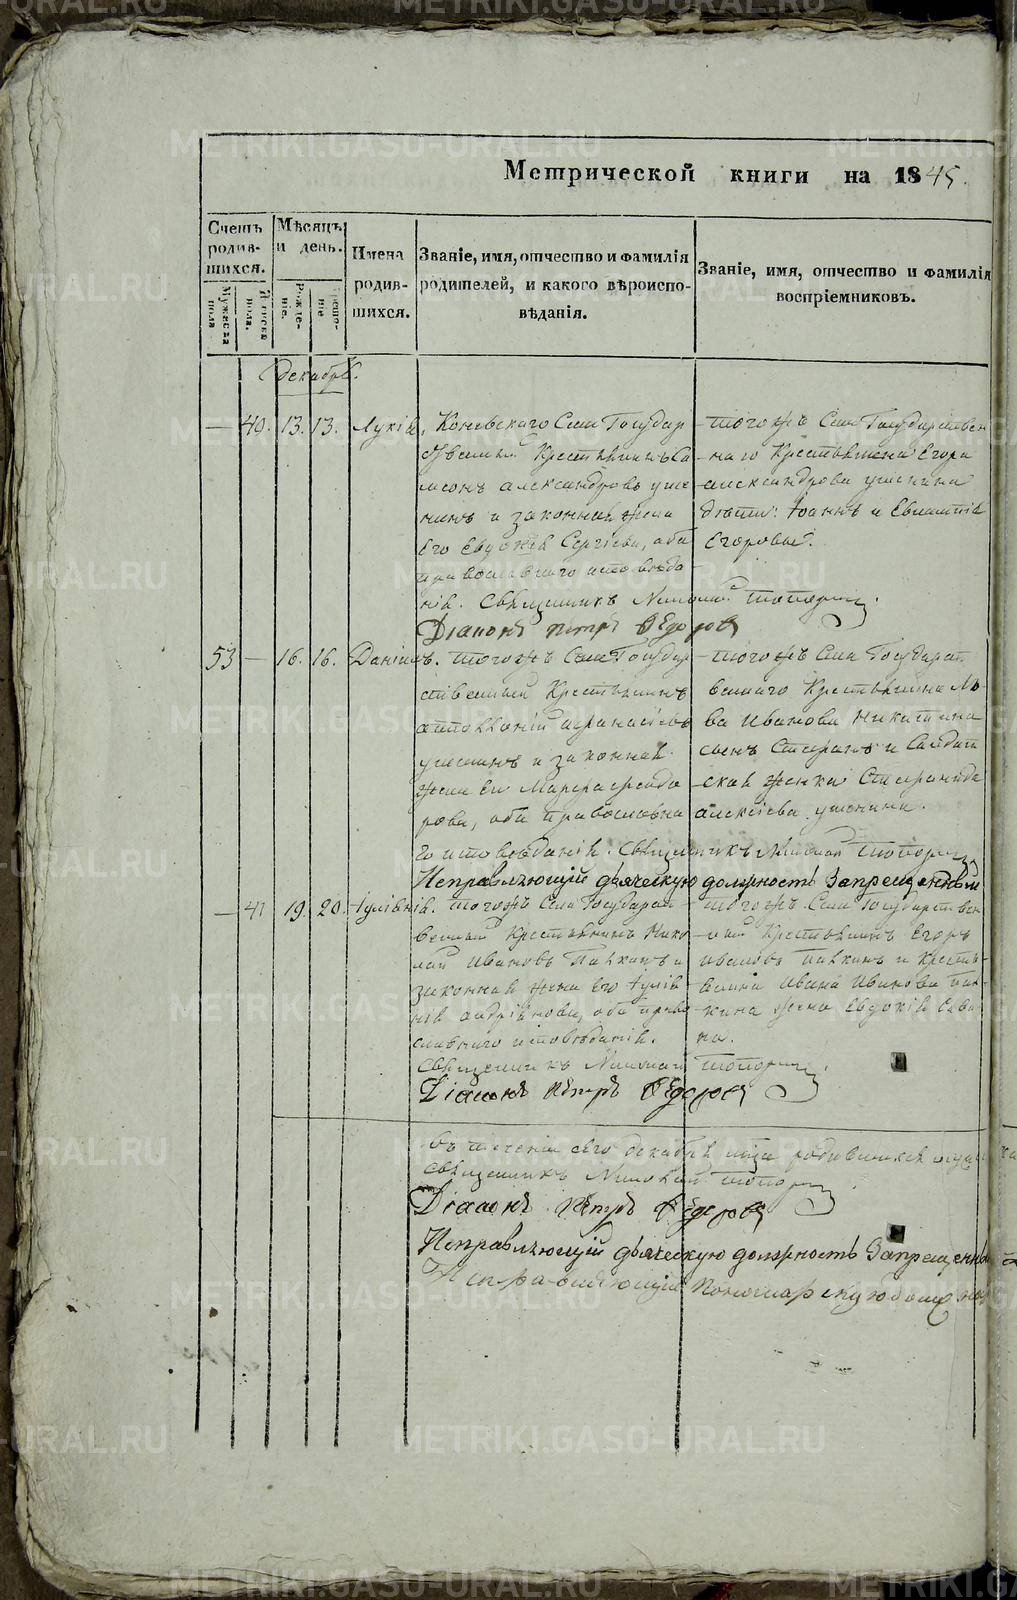 Метрической книги на 1845.
Счетъ родив-шихся.
Мужеска пола
Женска пола.
Мѣсяцъ и день.
Рожде-нiе.
Креще-нiе
Имена родив-шихся.
Званiе, имя, отчество и фамилiя
родителей, и какого вѣроиспо-
вѣданiя.
Званiе, имя, отчество и фамилiя
воспрiемниковъ.
Декабрь.
— 40. 13. 13. Лукiя,
Коневскаго Села Государ
ственный Крестьянинъ Са
мсонъ Александровъ
и законная жена
его Евдокiя Сергiева, оба
православнаго исповѣда
нiя. Священникъ
Дiаконъ Петръ Ѳедоровъ
тогожъ Села Государствен
наго Крестьянина Егора
Александрова
дѣти: Iоаннъ и Евлампiя
Егоровы.
53 — 16. 16. Данiилъ.
тогожъ Села Государ
ственный Крестьянинъ
Аполлонiй Афанасiевъ
и законная
жена его Марфа Федо
рова, оба православна
го исповѣданiя. Священникъ
Исправляющiй дьяческую должность Запрещенный
тогожъ Села Государст
веннаго Крестьянина
Иванова Никитина
сынъ Стефанъ и Солдат
ская женка Стефанида
Алексiева
— 41 19. 20. Iулiянiя.
тогожъ Села Государст
венный Крестьянинъ Нико
лай Ивановъ Палкинъ и
законная жена его Iулiя
нiя Андрiянова, оба право
славнаго исповѣданiя.
Священникъ
Дiаконъ Петръ Ѳедоровъ
тогожъ Села Государствен
ный Крестьянинъ Егоръ
Ивановъ Палкинъ и Кресть
янина Ивана Иванова Пал
кина жена Евдокiя Савви
на.
Въ теченiи сего декабря мѣсяца родившихся
Священникъ
Дiаконъ Петръ Ѳедоровъ
Исправляющiй дьяческую должность Запрещенный
Исправляющiй Пономарскую должность
METRIKI.GASO-URAL.RU